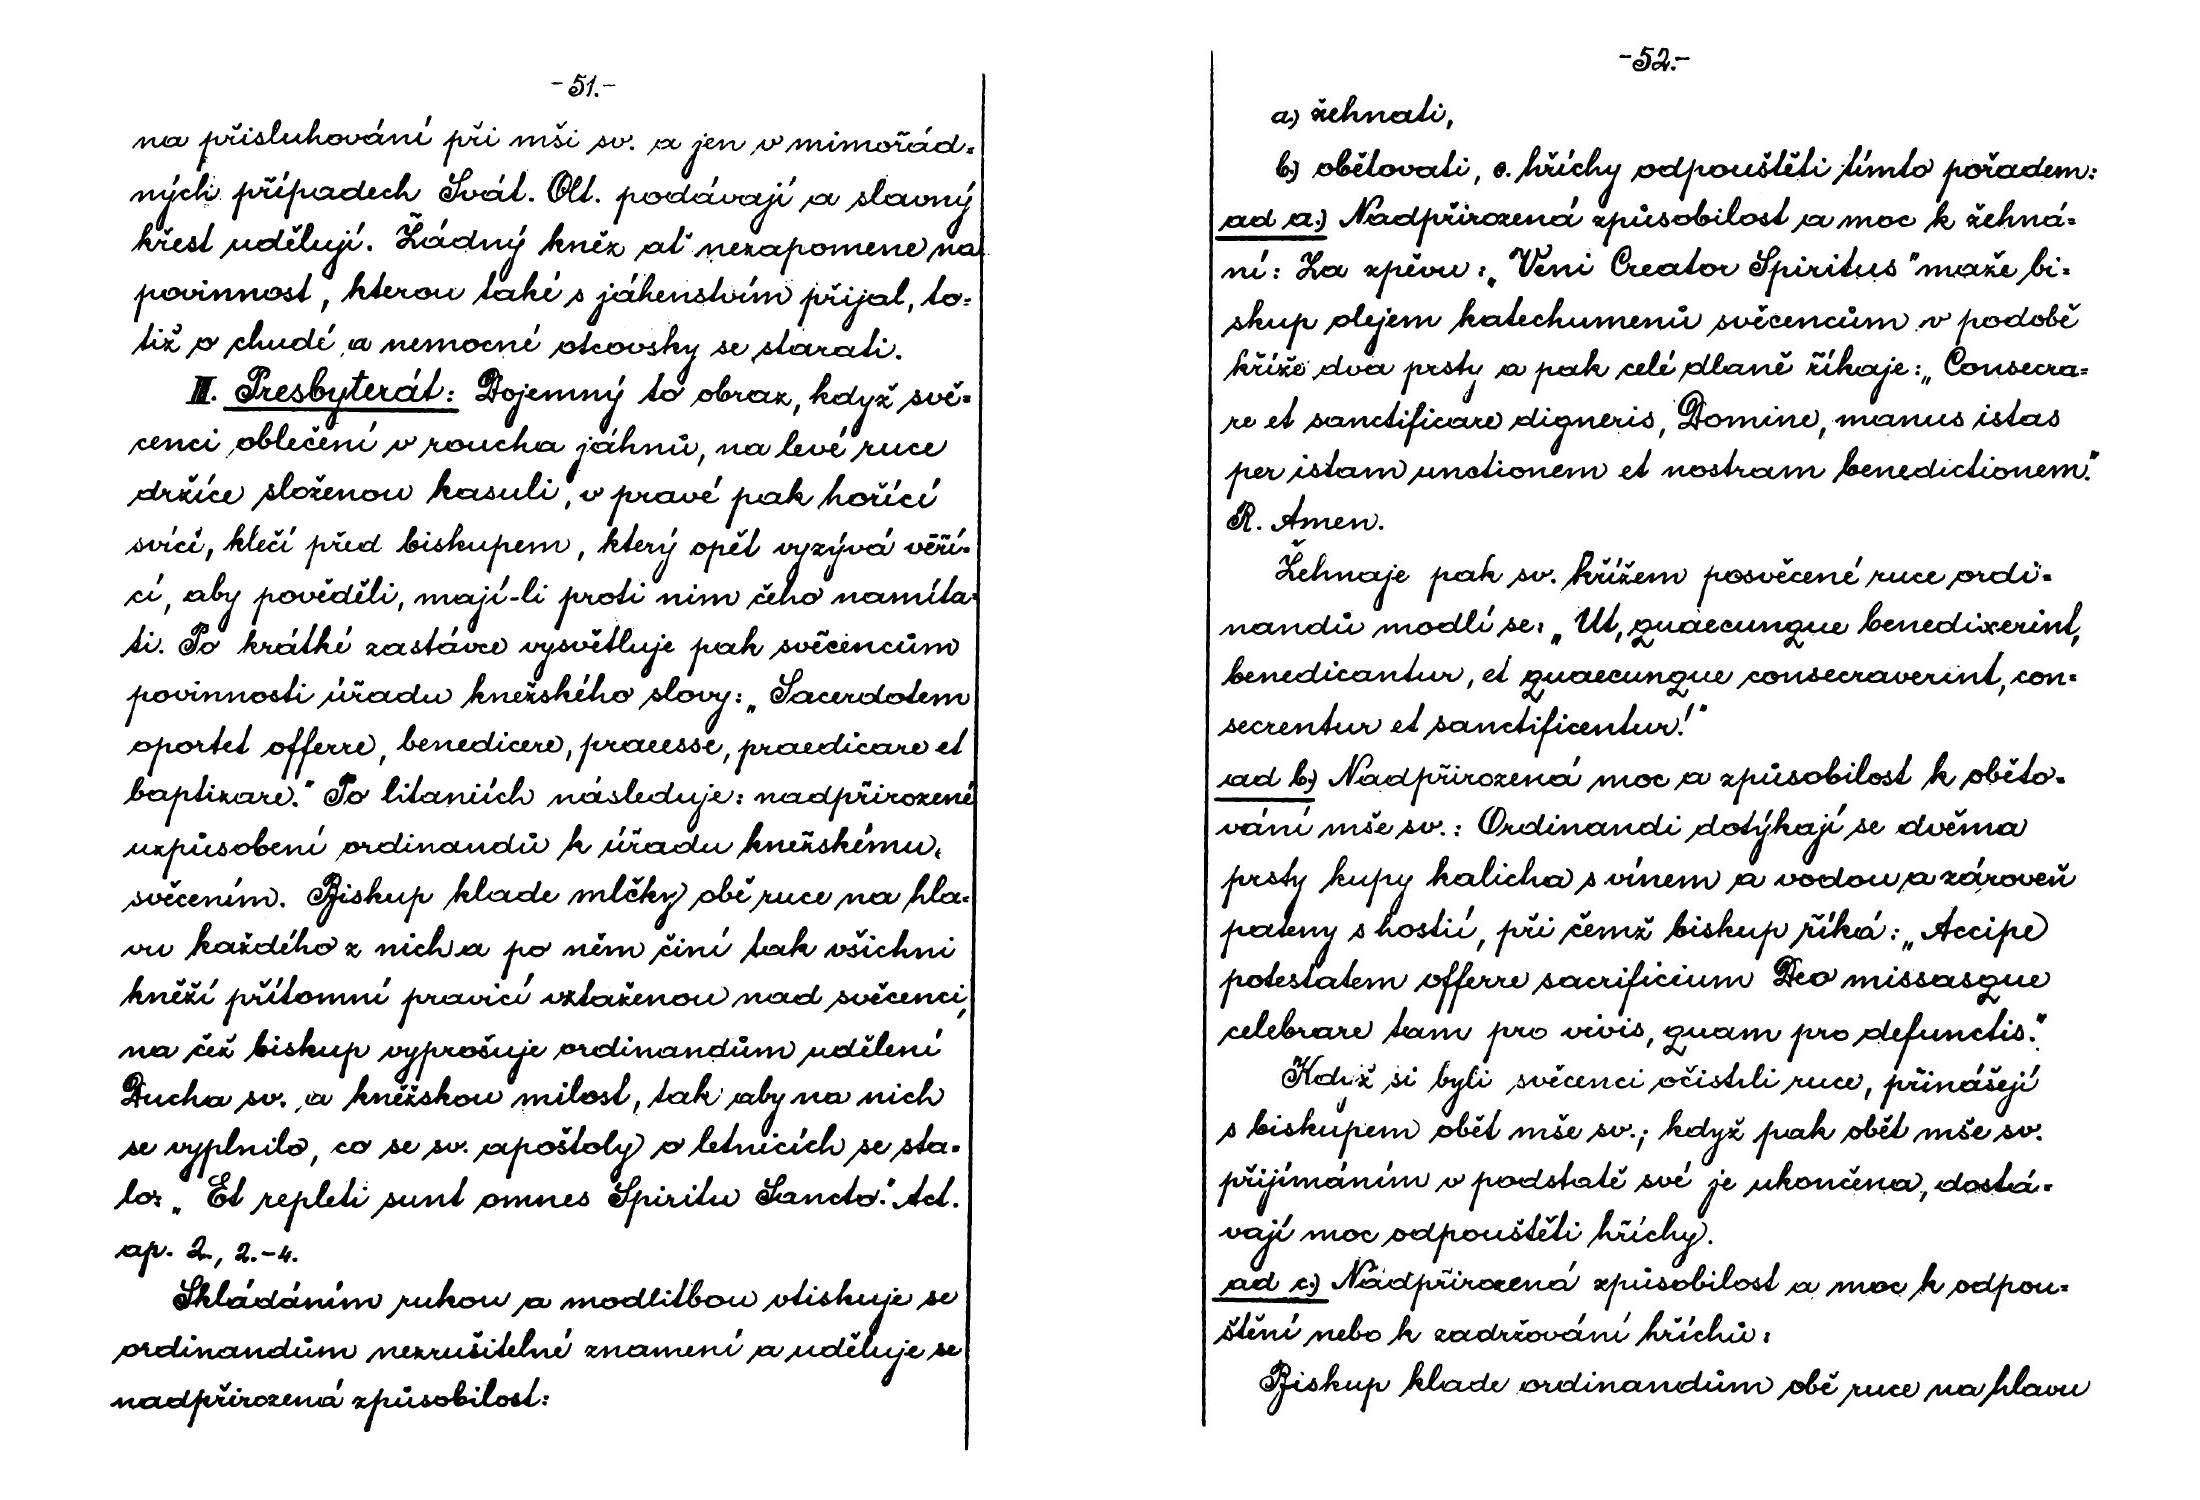 -51.-
na přisluhování při mši sv. a jen v mimořád-
ných případech Svát. Olt. podávají a slavný
křest udělují. Žádný kněz ať nezapomene na
povinnost, kterou také s jáhenstvím přijal, to-
tiž o chudé a nemocné otcovsky se starati.
III. Presbyterát: Dojemný to obraz, když svě-
cenci oblečení v roucha jáhnů, na levé ruce
držíce složenou kasuli, v pravé pak hořící
svíci, klečí před biskupem, který opět vyzývá věří-
cí, aby pověděli, mají-li proti nim čeho namíta-
ti. Po krátké zastávce vysvětluje pak svěcencům
povinnosti úřadu kněžského slovy: „Sacerdotem
oportet offerre, benedicere, praeesse, praedicare et
baptizare." Po litaniích následuje: nadpřirozené
uzpůsobení ordinandů k úřadu kněžskému,
svěcením. Biskup klade mlčky obě ruce na hla-
vu každého z nich a po něm činí tak všichni
kněží přítomní pravicí vztaženou nad svěcenci,
na čež biskup vyprošuje ordinandům udělení
Ducha sv. a kněžskou milost, tak aby na nich
se vyplnilo, co se sv. apoštoly o letnicích se sta-
lo: „Et repleti sunt omnes Spiritu Sancto." Act.
ap. 2., 2.-4.
Skládáním rukou a modlitbou vtiskuje se
ordinandům nezrušitelné znamení a uděluje se
nadpřirozená způsobilost:
-52.-
a) žehnati,
b) obětovati, c. hříchy odpouštěti tímto pořadem:
ad a.) Nadpřirozená způsobilost a moc k žehná-
ní: Za zpěvu: „Veni Creator Spiritus" maže bi-
skup olejem katechumenů svěcencům v podobě
kříže dva prsty a pak celé dlaně říkaje: „Consecra-
re et sanctificare digneris, Domine, manus istas
per istam unctionem et nostram benedictionem."
R. Amen.
Žehnaje pak sv. křížem posvěcené ruce ordi-
nandů modlí se: „Ut, quaecunque benedixerint,
benedicantur, et quaecunque consecraverint, con-
secrentur et sanctificentur!"
ad b.) Nadpřirozená moc a způsobilost k oběto-
vání mše sv.: Ordinandi dotýkají se dvěma
prsty kupy kalicha s vínem a vodou a zároveň
pateny s hostií, při čemž biskup říká: „Accipe
potestatem offerre sacrificium Deo missasque
celebrare tam pro vivis, quam pro defunctis."
Když si byli svěcenci očistili ruce, přinášejí
s biskupem oběť mše sv.; když pak oběť mše sv.
přijímáním v podstatě své je ukončena, dostá-
vají moc odpouštěti hříchy.
ad c.) Nadpřirozená způsobilost a moc k odpou-
štění nebo k zadržování hříchů:
Biskup klade ordinandům obě ruce na hlavu